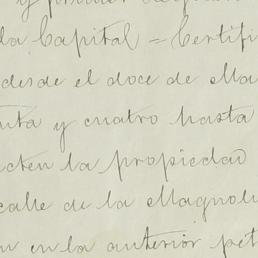 y primer
la Capital = Certifi
desde el doce de Ma
nta y cuatro hasta
cten la propiedad
calle de la Magnoli
n en la anterior pet